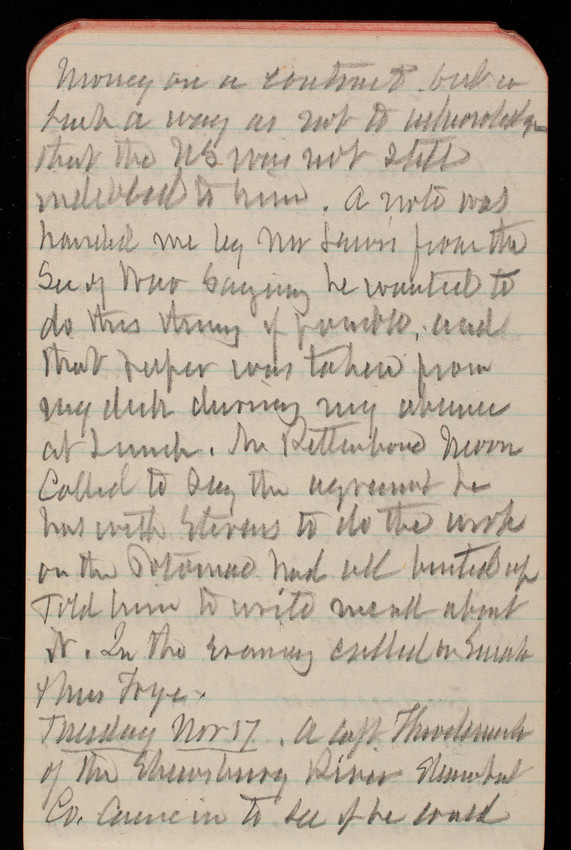 Money on a contract but in
such a way as not to acknowledge
that the US was not still
indebted to him. A note was
handed me by Mr Lewis from the
Sec of War saying he wanted to
do this thing if possible, and
that paper was taken from
my desk during my absence
at Lunch. Mr Pettenbone Nixon
Called to say the agreement he
has with Stevens to do the work
on the Potomac had all busted up
Told him to write me all about
it. In the evening called on Sarah
& Miss Frye.
Tuesday Nov 17. A Capt
of the Shrewsbury River Steamboat
Co. Came in to see if he could